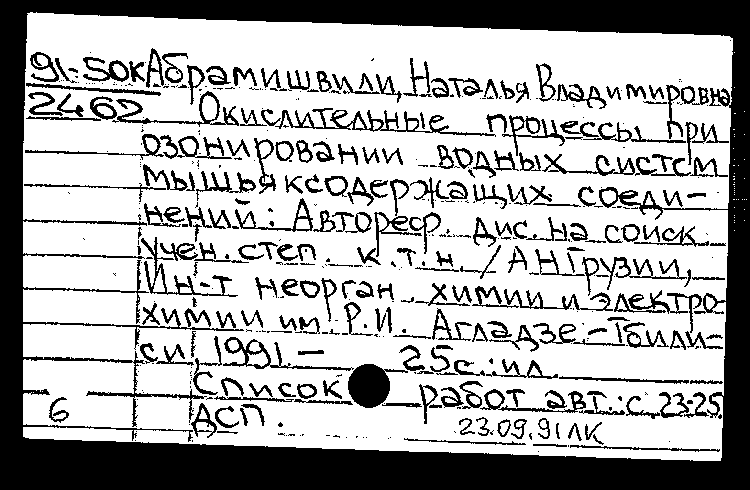 91-50к Абрамишвили, Наталья Владимировна
2462. Окислительные процессы при
озонировании водных систем
мышьяксодержащих соеди-
нений: Автореф. дис. на соиск.
учен. степ. к.т.н. / АН Грузии,
Ин-т неорган. химии и электро-
химии им. Р.И. Агладзе.-Тбили-
си, 1991.- 25с.:ил.
Список работ авт.: с.23-25
6 ДСП. 23.09.91 ЛК